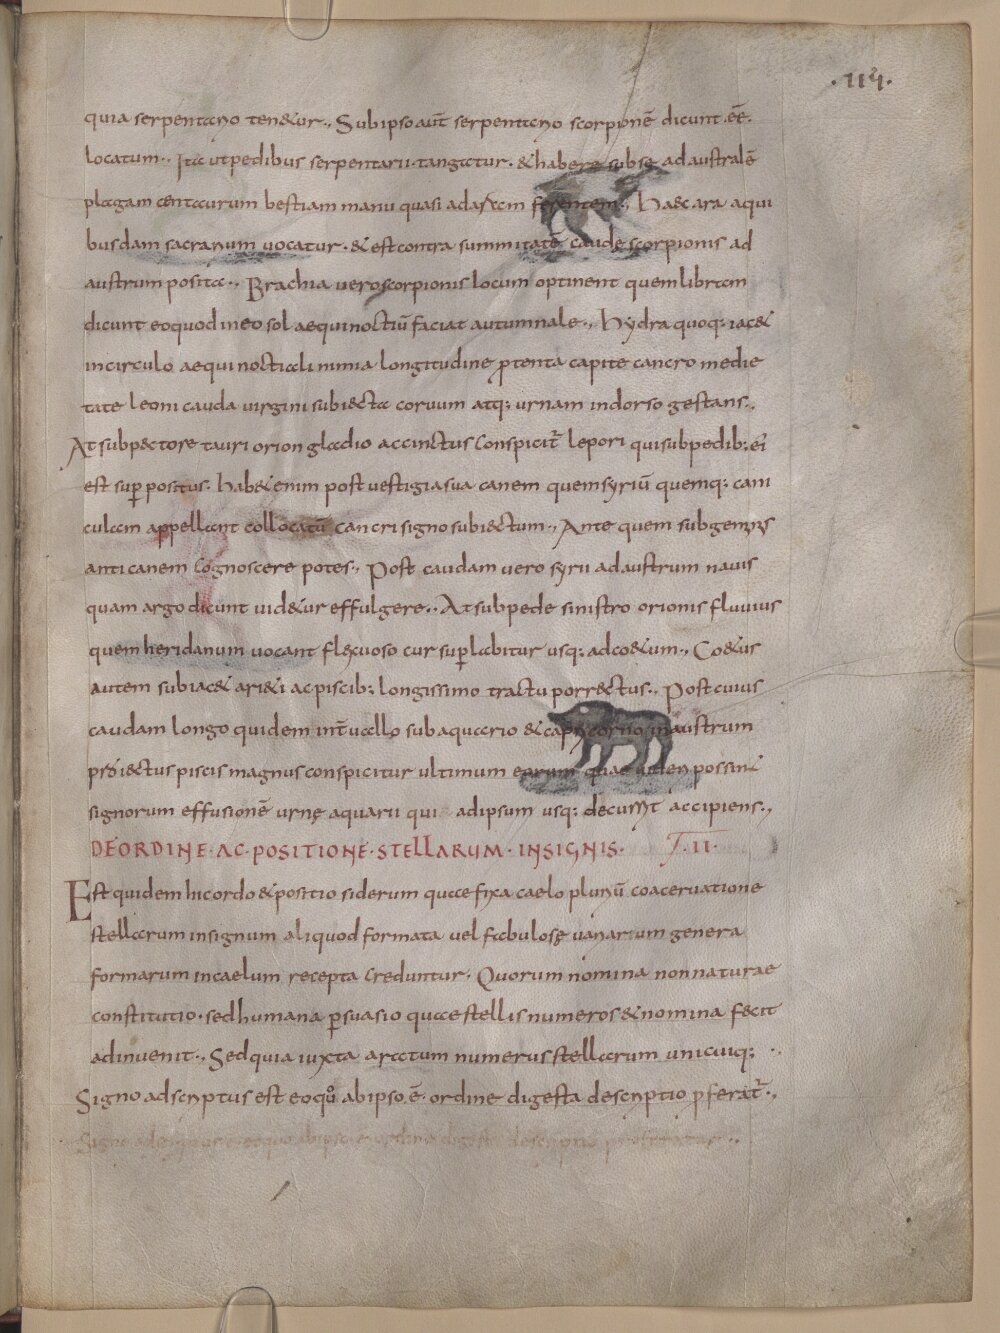 ·114·
quia serpentario tendetur., Sub ipso aut̄ serpentario scorpionē dicunt eē.
locatum., Ita ut pedibus serpentarii tangatur. & habere sub se ad australē
plagam centaurum bestiam manu quasi ad aram ferentem., Haec ara a qui
busdam sacrarium vocatur. & est contra summitatē caudę scorpionis ad
austrum posita., Brachia vero scorpionis locum optinent quem libram
dicunt eo quod in eo sol aequinoctiū faciat autumnale., Hydra quoq: iac&
in circulo aequinoctiali nimia longitudine ptenta capite cancro medie
tate leoni cauda virgini subiecta corvum atq: urnam in dorso gestans.,
At sub pectore tauri orion gladio accinctus conspicit̄ lepori qui sub pedib: ei
est suppositus. hab& enim post vestigia sua canem quem syriū quemq: cani
culam appellant collocatū cancri signo subiectum., Ante quem sub geminis
anticanem cognoscere potes., Post caudam vero syrii ad austrum navis
quam argo dicunt vid&ur effulgere., At sub pede sinistro orionis fluvius
quem heridanum vocant flexuoso cursu plabitur usq: ad co&um., Co&us
autem subiac& ari&i ac piscib: longissimo tractu porrectus., Post cuius
caudam longo quidem intvallo sub aquario & capricorno in austrum
proiectus piscis magnus conspicitur ultimum eorum quae videri possint
signorum effusionē urnę aquarii qui ad ipsum usq: decurrit accipiens.,
DE ORDINE·AC·POSITIONE·STELLARUM·IN SIGNIS· T·II·
Est quidem hic ordo & positio siderum quae fixa caelo plurimū coacervatione
stellarum in signum aliquod formata vel fabulosę variarum genera
formarum in caelum recepta creduntur. Quorum nomina non naturae
constitutio· sed humana psuasio quae stellis numeros & nomina fecit
adinvenit., Sed quia iuxta aratum numerus stellarum unicuiq:
Signo adscriptus est eo quo ab ipso ē ordine digesta descriptio pferat̄.,